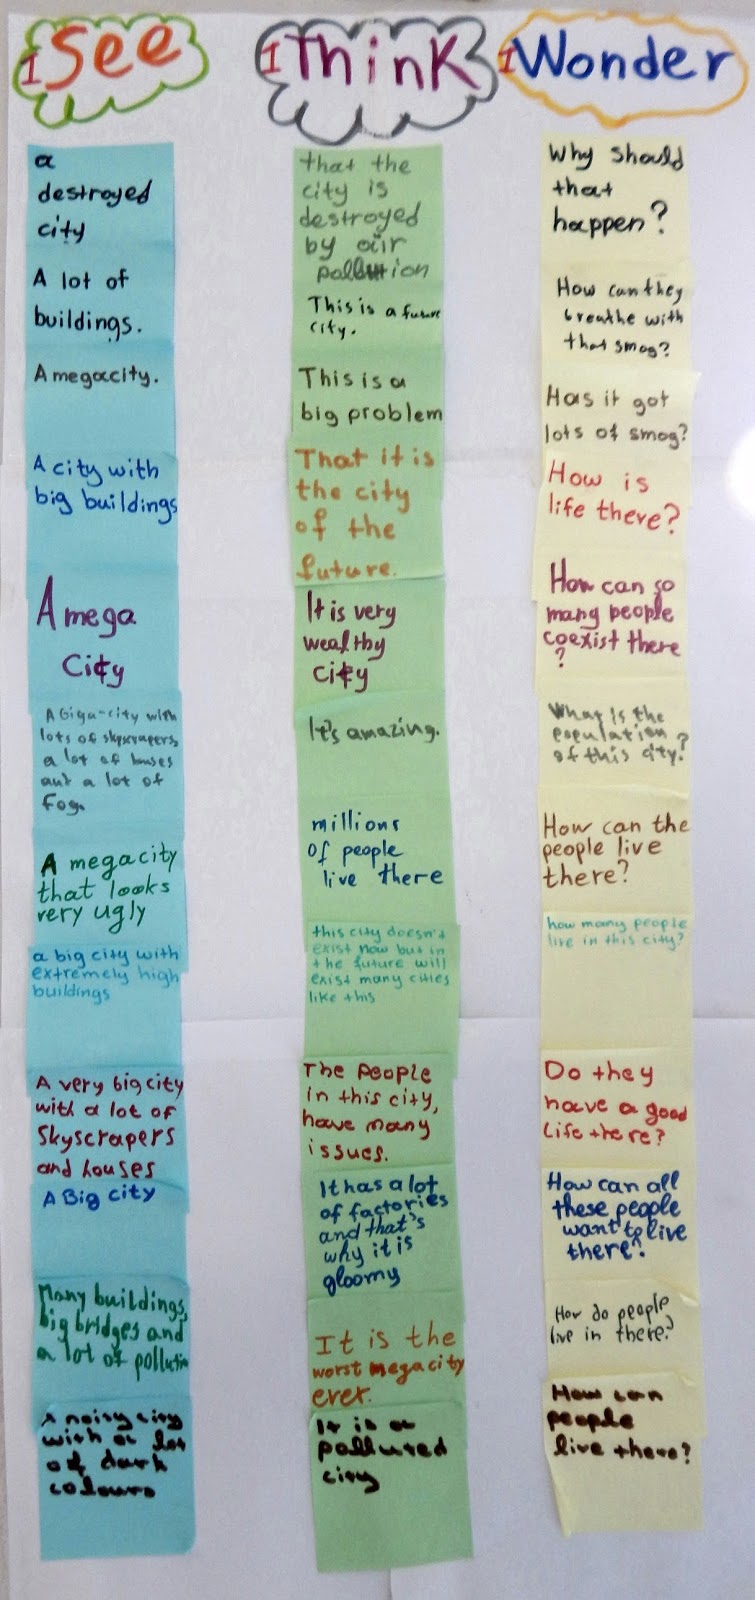 I See
a
destroyed
city
A lot of
buildings.
A megacity.
A city with
big buildings
A mega
City
A Giga-city with
lots of skyscrapers,
a lot of houses
and a lot of
Fog.
A megacity
that looks
very ugly
a big city with
extremely high
buildings
A very big city
with a lot of
Skyscrapers
and houses
A Big city
Many buildings,
big bridges and
a lot of pollution
A noisy city
with a lot
of dark
colours
I Think
that the
city is
destroyed
by our
pollution
This is a future
city.
This is a
big problem
That it is
the city
of the
future.
It is very
wealthy
city
It's amazing.
millions
of people
live there
this city doesn't
exist now but in
the future will
exist many cities
like this
The people
in this city,
have many
issues.
It has a lot
of factories
and that's
why it is
gloomy
It is the
worst megacity
ever.
It is a
polluted
city
I Wonder
Why should
that
happen?
How can they
breathe with
that smog?
Has it got
lots of smog?
How is
life there?
How can so
many people
coexist there
?
What is the
population
of this city?
How can the
people live
there?
how many people
live in this city?
Do they
have a good
life there?
How can all
these people
want to live
there?
How do people
live in there?
How can
people
live there?